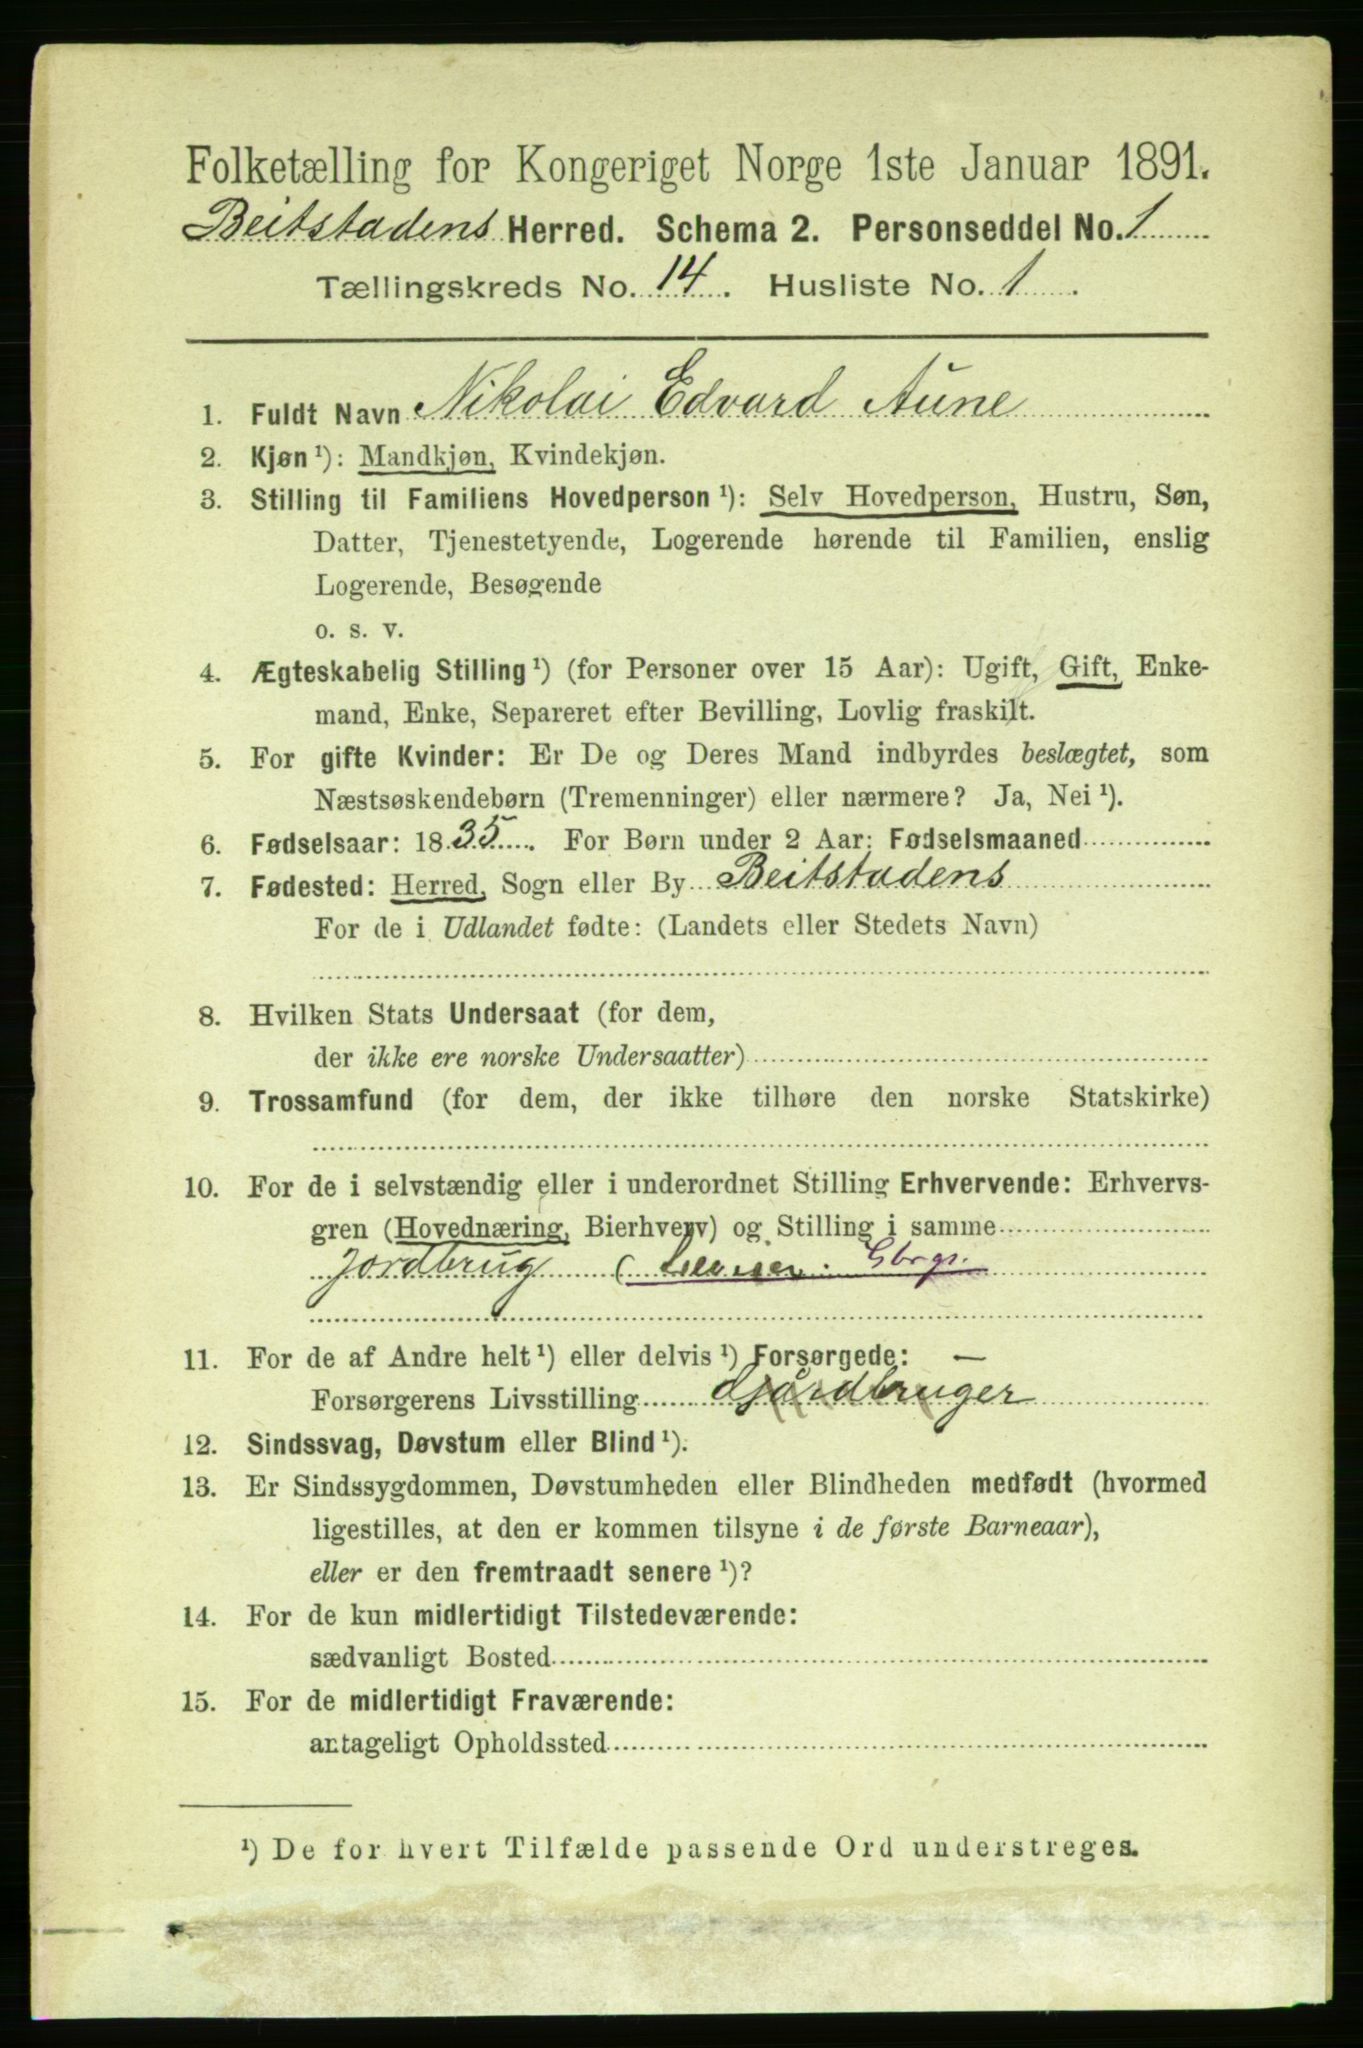 Folketælling for Kongeriget Norge 1ste Januar 1891.
Beitstadens Herred. Schema 2. Personseddel No. 1
Tællingskreds No. 14. Husliste No. 1.
1. Fuldt Navn Nikolai Edvard Aune
2. Kjøn ¹): Mandkjøn, Kvindekjøn.
3. Stilling til Familiens Hovedperson ¹): Selv Hovedperson, Hustru, Søn,
Datter, Tjenestetyende, Logerende hørende til Familien, enslig
Logerende, Besøgende
o. s. v.
4. Ægteskabelig Stilling ¹) (for Personer over 15 Aar): Ugift, Gift, Enke-
mand, Enke, Separeret efter Bevilling, Lovlig fraskilt.
5. For gifte Kvinder: Er De og Deres Mand indbyrdes beslægtet, som
Næstsøskendebørn (Tremenninger) eller nærmere? Ja, Nei ¹).
6. Fødselsaar: 1835. For Børn under 2 Aar: Fødselsmaaned
7. Fødested: Herred, Sogn eller By Beitstadens
For de i Udlandet fødte: (Landets eller Stedets Navn)
8. Hvilken Stats Undersaat (for dem,
der ikke ere norske Undersaatter)
9. Trossamfund (for dem, der ikke tilhøre den norske Statskirke)
10. For de i selvstændig eller i underordnet Stilling Erhvervende: Erhvervs-
gren (Hovednæring, Bierhverv) og Stilling i samme
Jordbrug ( Gbrgr.
11. For de af Andre helt ¹) eller delvis ¹) Forsørgede: —
Forsørgerens Livsstilling Gårdbruger
12. Sindssvag, Døvstum eller Blind ¹).
13. Er Sindssygdommen, Døvstumheden eller Blindheden medfødt (hvormed
ligestilles, at den er kommen tilsyne i de første Barneaar),
eller er den fremtraadt senere ¹)?
14. For de kun midlertidigt Tilstedeværende:
sædvanligt Bosted
15. For de midlertidigt Fraværende:
antageligt Opholdssted
¹) De for hvert Tilfælde passende Ord understreges.